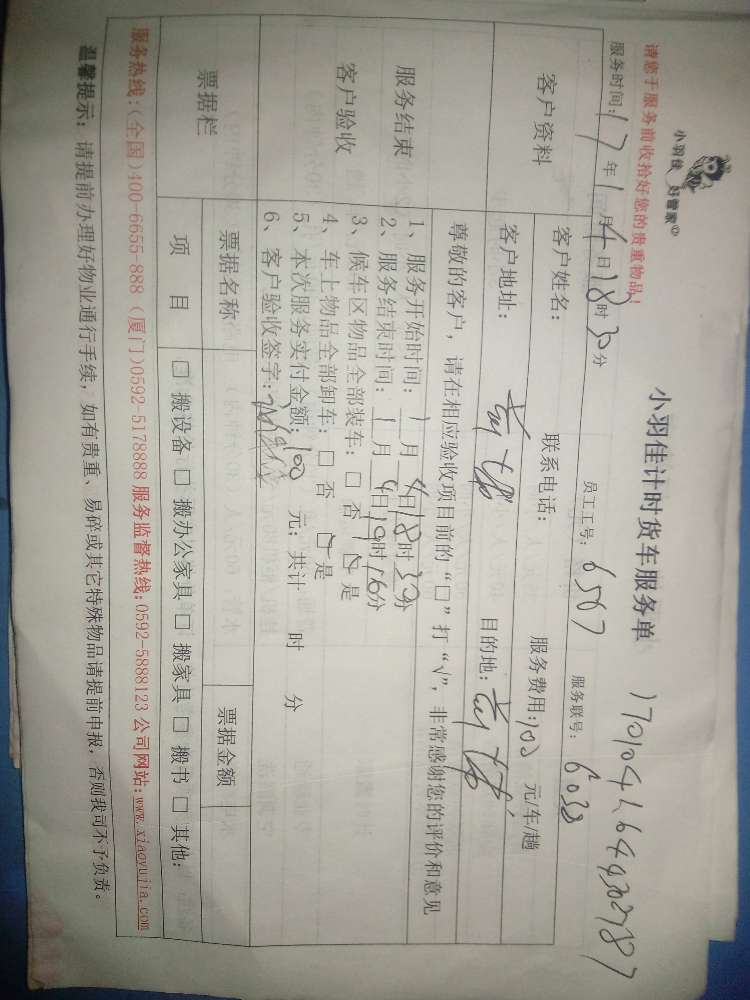 小羽佳 好管家
请您于服务前收拾好您的贵重物品!
小羽佳计时货车服务单
服务时间:17年1月4日18时30分 员工工号:6507 服务联号:6033
客户资料
客户姓名: 联系电话: 服务费用:100元/车/趟
客户地址: 目的地:
尊敬的客户，请在相应验收项目前的“□”打“√”，非常感谢您的评价和意见
服务结束
客户验收
1、服务开始时间:1月4日18时30分
2、服务结束时间:1月4日19时16分
3、候车区物品全部装车:□否 □是
4、车上物品全部卸车:□否 □是
5、本次服务实付金额:100元;共计 时 分
6、客户验收签字:
票据栏
票据名称 票据金额
项目 □搬设备 □搬办公家具 □搬家具 □搬书 □其他:
服务热线:(全国)400-6655-888 (厦门)0592-5178888 服务监督热线:0592-5888123 公司网站:www.xiaoyujia.com
温馨提示: 请提前办理好物业通行手续，如有贵重、易碎或其它特殊物品请提前申报，否则我司不予负责。